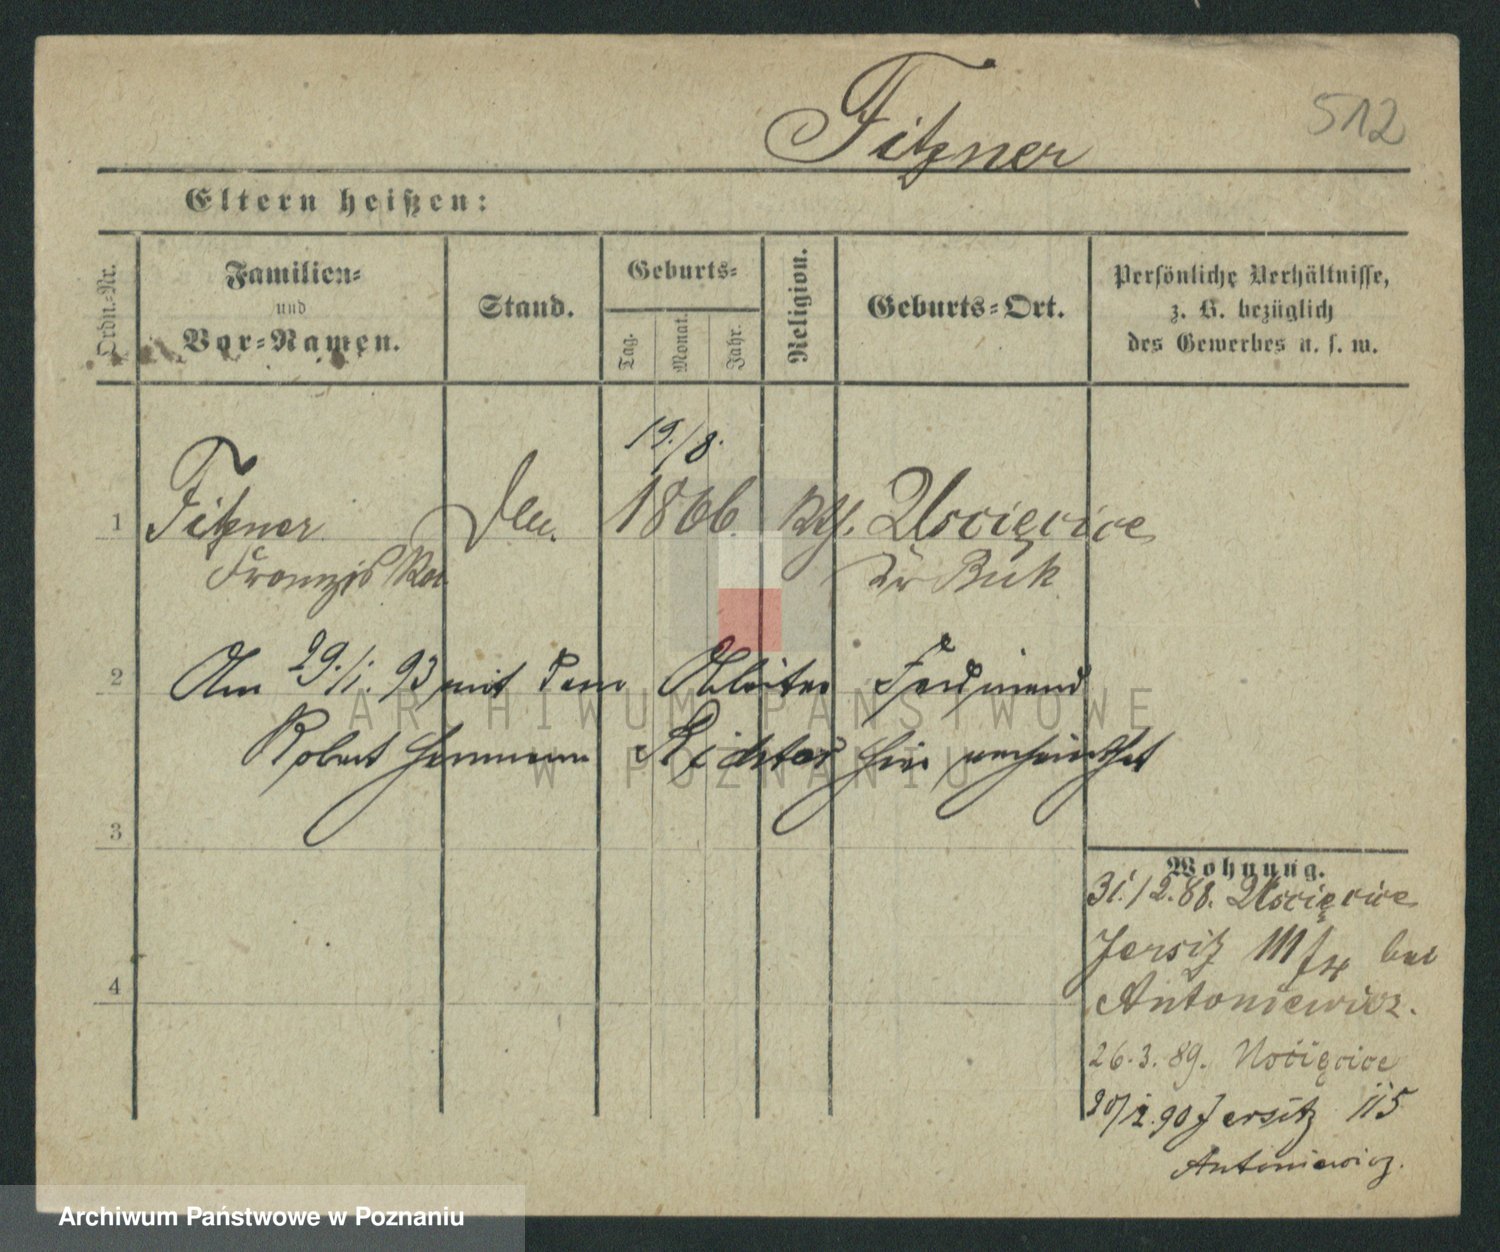 Fitzner
512
Eltern heißen:
Ordn.-Nr.
Familien-
und
Vor-Namen.
Stand.
Geburts-
Tag.
Monat.
Jahr.
Religion.
Geburts-Ort.
Persönliche Verhältnisse,
z. B. bezüglich
des Gewerbes u. s. w.
19./8.
1 Fitzner 1866.
Franziska Kr Buk
2 Am 29./1. 93 mit dem Arbeiter Ferdinand
Robert Hermann Richter hier verheirathet
3
Wohnung.
Jersitz 111 bei
4
Antoniewicz.
26.3.89.
Jersitz 115
Antoniewicz.
ARCHIWUM PAŃSTWOWE
W POZNANIU
Archiwum Państwowe w Poznaniu